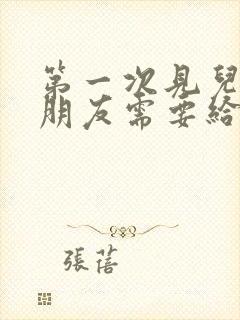 第一次見兒
朋友需要給
張蓓